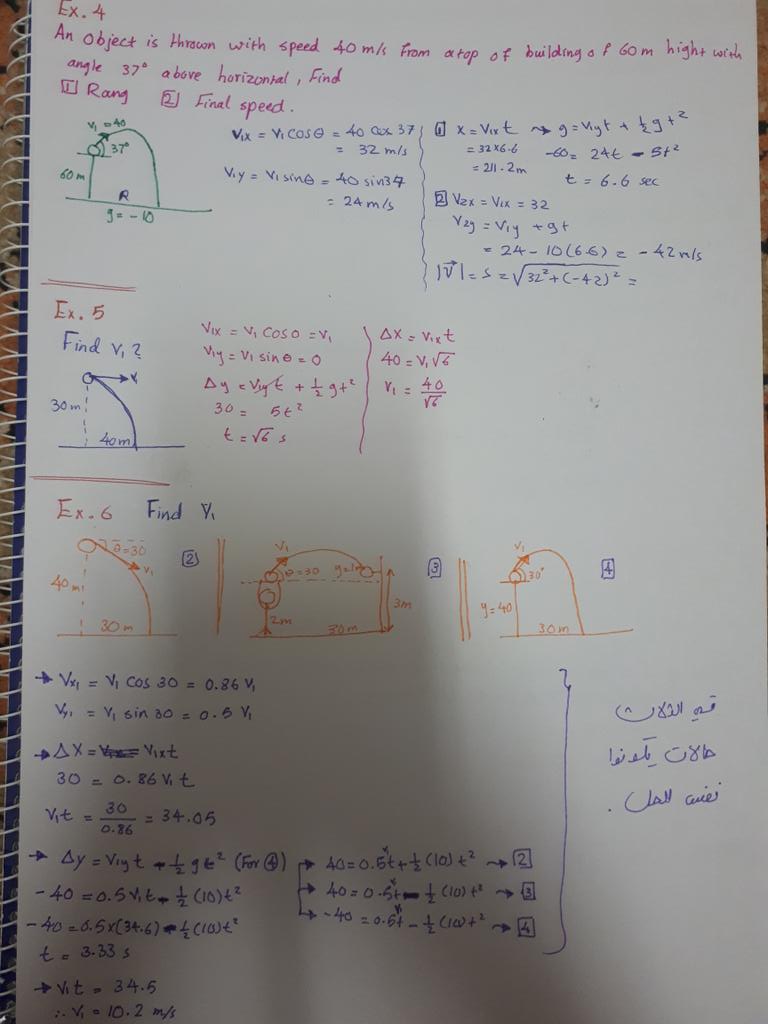 Ex. 4
An object is thrown with speed 40 m/s from atop of building of 60m hight with
angle 37° above horizontal, Find
1 Rang 2 Final speed.
V₁ = 40
37°
60m
R
g = -10
V₁x = V₁ cosθ = 40 cos 37
= 32 m/s
V₁y = V₁ sinθ = 40 sin 37
= 24 m/s
1 x = V₁x t → y = V₁y t + ½ g t²
= 32 x 6.6 -60 = 24t - 5t²
= 211.2m t = 6.6 sec
2 V₂x = V₁x = 32
V₂y = V₁y + gt
= 24 - 10(6.6) = -42 m/s
|V| = s = √32² + (-42)² =
Ex. 5
Find V₁ ?
V₁
30m
40m
V₁x = V₁ cos 0 = V₁
V₁y = V₁ sin θ = 0
Δy = V₁y t + ½ g t²
30 = 5t²
t = √6 s
Δx = V₁x t
40 = V₁ √6
V₁ = 40/√6
Ex. 6 Find V₁
θ = 30
V₁
40m
30m
2
V₁
θ = 30
y = 1m
2m
30m
3m
3
V₁
30°
y = 40
30m
4
→ Vx₁ = V₁ cos 30 = 0.86 V₁
Vy₁ = V₁ sin 30 = 0.5 V₁
→ Δx = V₁x t
30 = 0.86 V₁ t
V₁t = 30/0.86 = 34.05
→ Δy = V₁y t + ½ g t² (For 4)
-40 = 0.5 V₁t - ½ (10) t²
-40 = 0.5 x (34.6) - ½ (10) t²
t = 3.33 s
→ V₁t = 34.5
∴ V₁ = 10.2 m/s
→ 40 = 0.5 V₁t + ½ (10) t² → 2
→ 40 = 0.5 V₁t - ½ (10) t² → 3
→ -40 = 0.5 V₁t - ½ (10) t² → 4
حالات يكونوا
نفس الحل .